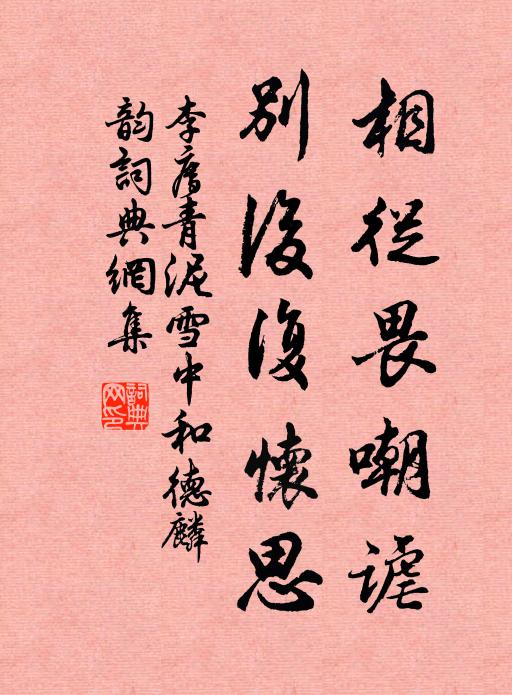 相從畏嘲謔
別後復懷思
李廌青泥雪中和德麟
韵詞典網集
詞典網印